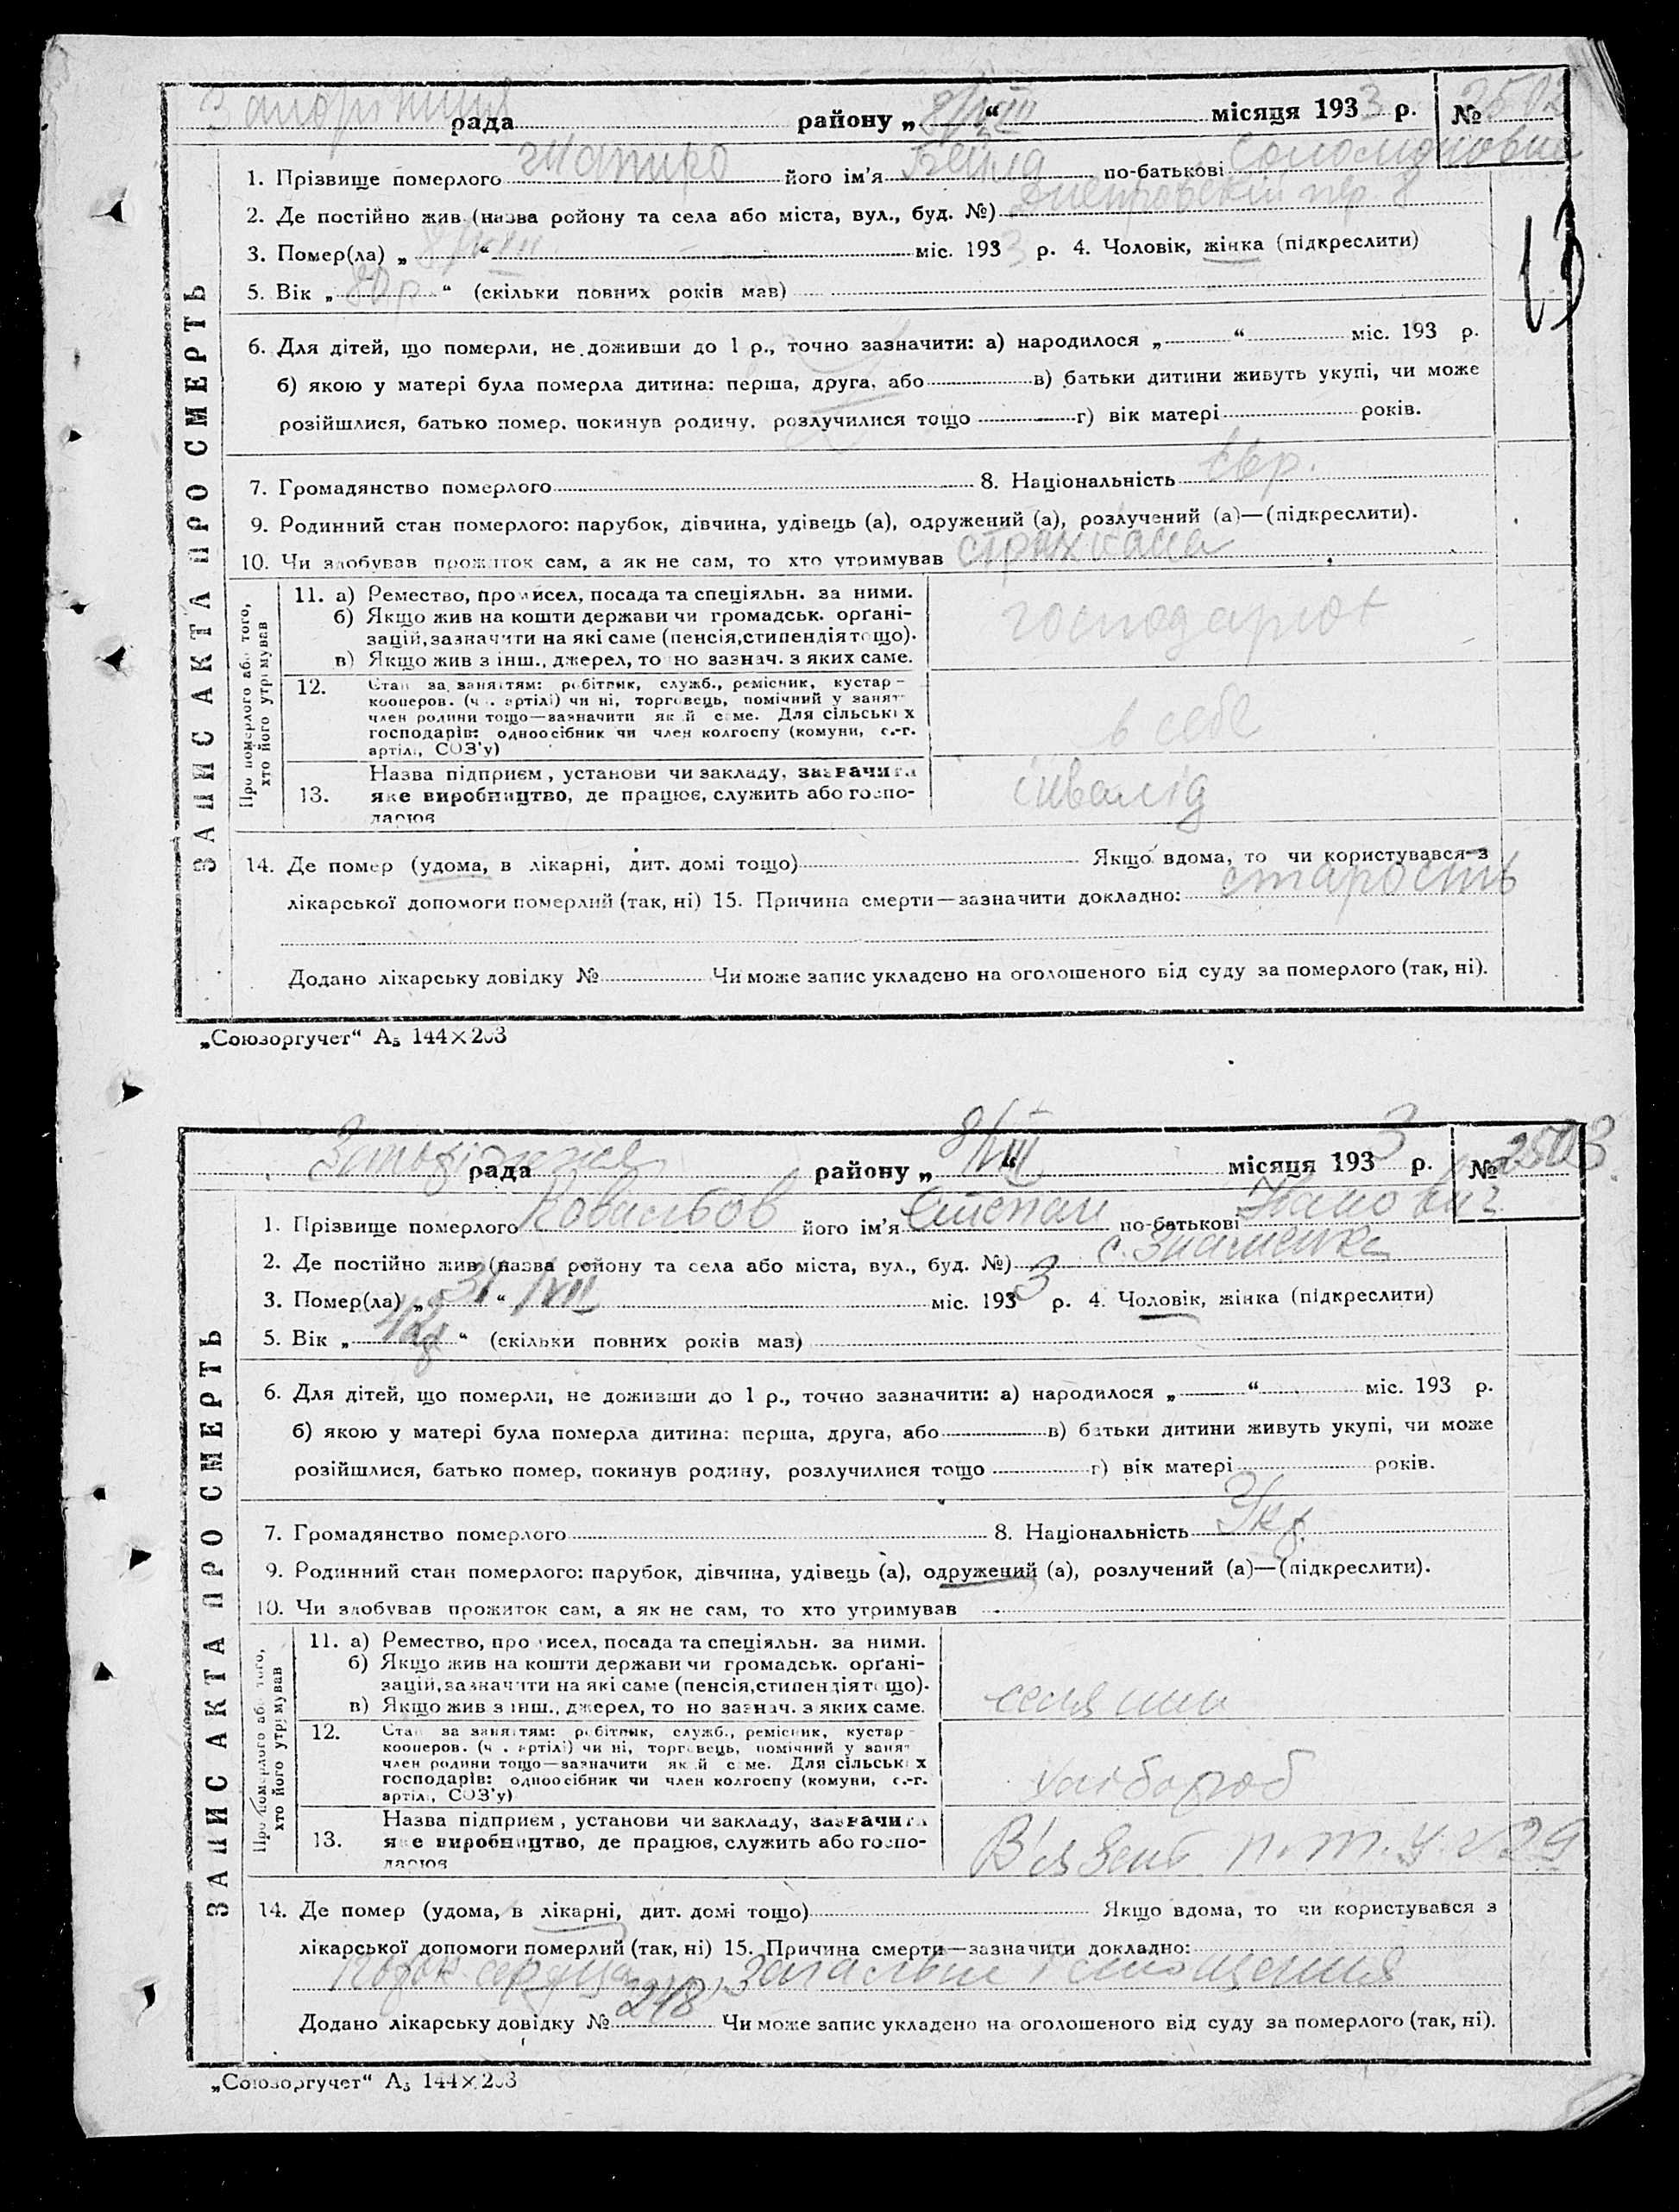 рада району „8/VIII“ місяця 1933 р. № 2502
1. Прізвище померлого Шапиро його ім'я Бейла по-батькові
2. Де постійно жив (назва ройону та села або міста, вул., буд. №) Днепровский пер. 8
3. Помер(ла) „8/VIII“ міс. 1933 р. 4. Чоловік, жінка (підкреслити)
5. Вік „80 р.“ (скільки повних років мав)
6. Для дітей, що померли, не доживши до 1 р., точно зазначити: а) народилося „ “ міс. 193 р.
б) якою у матері була померла дитина: перша, друга, або в) батьки дитини живуть укупі, чи може
розійшлися, батько помер, покинув родину, розлучилися тощо г) вік матері років.
7. Громадянство померлого 8. Національність Євр.
9. Родинний стан померлого: парубок, дівчина, удівець (а), одружений (а), розлучений (а)—(підкреслити).
10. Чи здобував прожиток сам, а як не сам, то хто утримував страхкаса
ЗАПИС АКТА ПРО СМЕРТЬ
Про померлого або того,
хто його утримував
11. а) Ремество, промисел, посада та спеціяльн. за ними.
б) Якщо жив на кошти держави чи громадськ. орґані-
зацій, зазначити на які саме (пенсія, стипендія тощо).
в) Якщо жив з інш., джерел, то но зазнач. з яких саме.
12. Стан за заняттям: робітник, служб., ремісник, кустар-
кооперов. (ч . артілі) чи ні, торговець, помічний у занят
член родини тощо—зазначити який саме. Для сільських
господарів: одноосібник чи член колгоспу (комуни, с.-г.
артілі, СОЗ'у)
в себе
Назва підприєм, установи чи закладу, зазначити
13. яке виробництво, де працює, служить або госпо-
дарює
інвалід
14. Де помер (удома, в лікарні, дит. домі тощо) Якщо вдома, то чи користувався з
лікарської допомоги померлий (так, ні) 15. Причина смерти—зазначити докладно: старость
Додано лікарську довідку № Чи може запис укладено на оголошеного від суду за померлого (так, ні).
„Союзоргучет“ А5 144×203
рада району „8/VIII“ місяця 1933 р. № 2503
1. Прізвище померлого Ковальов його ім'я Степан по-батькові Іванович
2. Де постійно жив (назва ройону та села або міста, вул., буд. №) с. Знаменка
3. Помер(ла) „31“ /VII міс. 1933 р. 4. Чоловік, жінка (підкреслити)
5. Вік „ “ (скільки повних років мав)
6. Для дітей, що померли, не доживши до 1 р., точно зазначити: а) народилося „ “ міс. 193 р.
б) якою у матері була померла дитина: перша, друга, або в) батьки дитини живуть укупі, чи може
розійшлися, батько помер, покинув родину, розлучилися тощо г) вік матері років.
7. Громадянство померлого 8. Національність Укр.
9. Родинний стан померлого: парубок, дівчина, удівець (а), одружений (а), розлучений (а)—(підкреслити).
10. Чи здобував прожиток сам, а як не сам, то хто утримував
ЗАПИС АКТА ПРО СМЕРТЬ
Про померлого або того,
хто його утримував
11. а) Ремество, промисел, посада та спеціяльн. за ними.
б) Якщо жив на кошти держави чи громадськ. орґані-
зацій, зазначити на які саме (пенсія, стипендія тощо).
в) Якщо жив з інш., джерел, то но зазнач. з яких саме.
селянин
12. Стан за заняттям: робітник, служб., ремісник, кустар-
кооперов. (ч . артілі) чи ні, торговець, помічний у занят
член родини тощо—зазначити який саме. Для сільських
господарів: одноосібник чи член колгоспу (комуни, с.-г.
артілі, СОЗ'у)
хлібороб
Назва підприєм, установи чи закладу, зазначити
13. яке виробництво, де працює, служить або госпо-
дарює
В'язень п.т.у. 29
14. Де помер (удома, в лікарні, дит. домі тощо) Якщо вдома, то чи користувався з
лікарської допомоги померлий (так, ні) 15. Причина смерти—зазначити докладно:
Порок сердца,
Додано лікарську довідку № 248 Чи може запис укладено на оголошеного від суду за померлого (так, ні).
„Союзоргучет“ А5 144×203